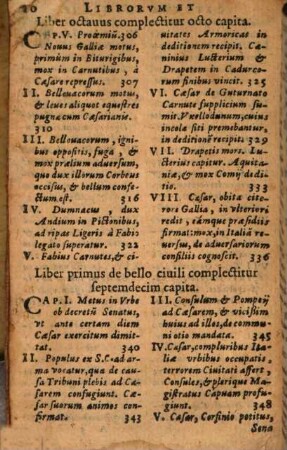 20 LIBRORVM ET
Liber octauus complectitur octo capita.
CAP. V. Proœmiũ. 306
Nouus Galliæ motus,
primùm in Biturigibus,
mox in Carnutibus, à
Cæsare repressus. 307
II. Bellouacorum motus,
& leues aliquot equestres
pugnæ cum Cæsarianis.
310
III. Bellouacorum, igni-
bus oppositis, fuga, &
mox prælium aduersum,
quo dux illorum Corbeus
occisus, & bellum confe-
ctum est. 316
IV. Dumnacus, dux
Andium in Pictonibus,
ad ripas Ligeris à Fabio
legato superatur. 322
V. Fabius Carnutes, & ci-
uitates Armoricas in
deditionem recipit. Ca-
ninius Lucterium &
Drapetem in Cadurco-
rum finibus vincit. 325
VI. Cæsar de Guturnato
Carnute supplicium su-
mit. Vxellodunum, cuius
incolæ siti premebantur,
in deditionē recipit. 329
VII. Drapetis mors. Lu-
cterius capitur. Aquita-
nia, & mox Comij dedi-
tio. 333
VIII Cæsar, obita ci-
teriore Gallia, in Vlteriorē
redit, eámque præsidiis
firmat: mox, in Italiã re-
uersus, de aduersariorum
consiliis cognoscit. 336
Liber primus de bello ciuili complectitur
septemdecim capita.
CAP. I. Metus in Vrbe
ob decretũ Senatus,
vt ante certam diem
Cæsar exercitum dimit-
tat. 340
II. Populus ex S.C. ad ar-
ma vocatur, qua de cau-
sa Tribuni plebis ad Cæ-
sarem confugiunt. Cæ-
sar suorum animos con-
firmat. 343
III. Consulum & Pompeij
ad Cæsarem, & vicißim
huius ad illos, de commu-
ni otio mandata. 345
IV. Cæsar, compluribus Ita-
liæ vrbibus occupatis,
terrorem Ciuitati affert,
Consules, & pleríque Ma-
gistratus Capuam profu-
giunt. 348
V. Cæsar, Corfinio potitus,
Sena